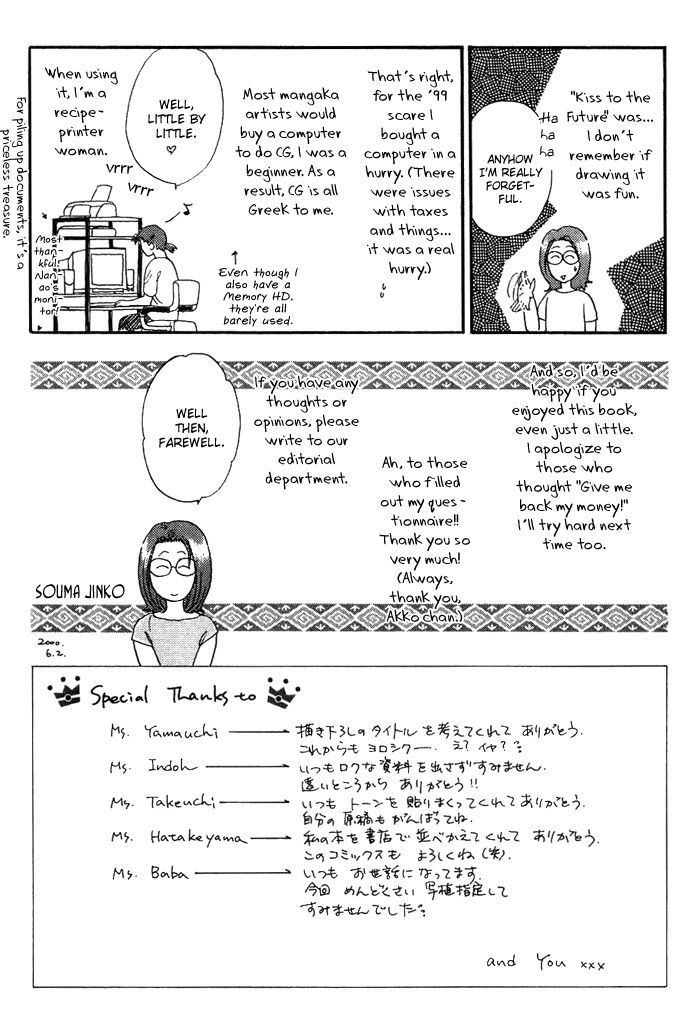 "Kiss to the
Future" was...
I don't
remember if
drawing it
was fun.
Ha
ha
ha
ANYHOW
I'M REALLY
FORGET-
FUL.
That's right,
for the '99
scare I
bought a
computer in a
hurry. (There
were issues
with taxes
and things...
it was a real
hurry.)
Most mangaka
artists would
buy a computer
to do CG, I was a
beginner. As a
result, CG is all
Greek to me.
Even though I
also have a
Memory HD.
they're all
barely used.
WELL,
LITTLE BY
LITTLE.
♡
When using
it, I'm a
recipe-
printer
woman.
vrrr
vrrr
♪
Most
than-
kful!
Nan-
ao's
moni-
tor!
For piling up documents, it's a
priceless treasure.
And so, I'd be
happy if you
enjoyed this book,
even just a little.
I apologize to
those who
thought "Give me
back my money!"
I'll try hard next
time too.
Ah, to those
who filled
out my ques-
tionnaire!!
Thank you so
very much!
(Always,
thank you,
Akko chan.)
If you have any
thoughts or
opinions, please
write to our
editorial
department.
WELL
THEN,
FAREWELL.
SOUMA JINKO
2000.
6.2.
Special Thanks to
Ms. Yamauchi → 描き下ろしのタイトルを考えてくれて ありがとう.
これからも ヨロシクー. え? イヤ?
Ms. Indoh → いつもロクな資料を出さずすみません.
遠いところから ありがとう!!
Ms. Takeuchi → いつも トーンを 貼りまくってくれてありがとう.
自分の 原稿も がんばってね.
Ms. Hatakeyama → 私の本を書店で並べかえてくれて ありがとう.
このコミックスも よろしくね(笑).
Ms. Baba → いつも お世話になってます.
今回 めんどくさい 写植指定して
すみませんでした
and You xxx